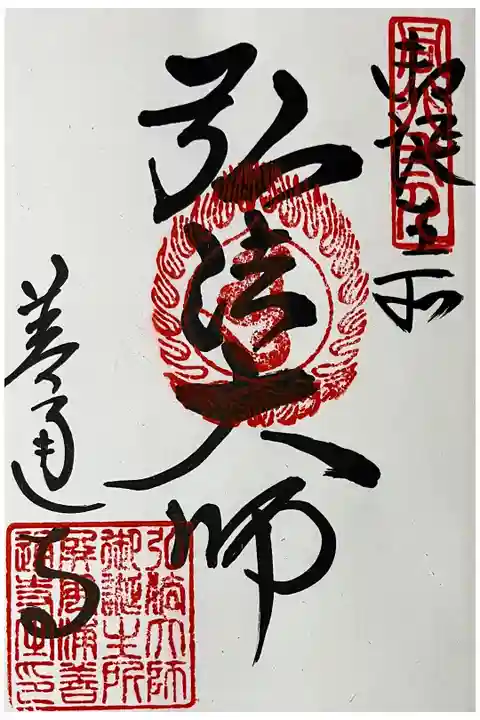 御誕生所
弘法大師
善通寺
弘法大師
御誕生所
屏風浦善
通寺之印